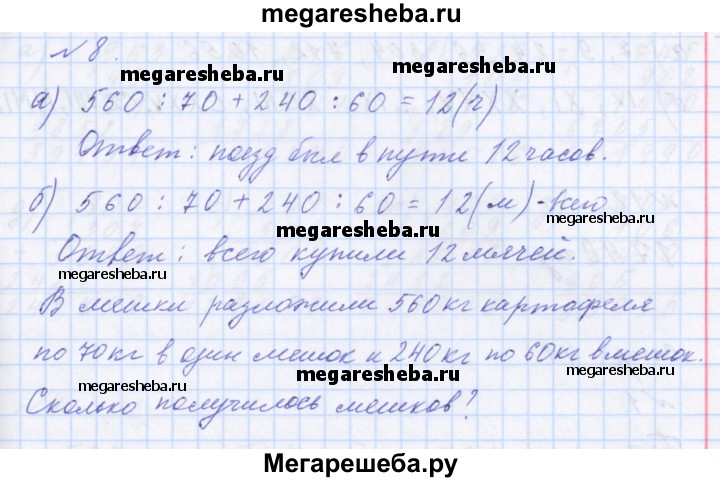 megaresheba.ru
№ 8.
megaresheba.ru megaresheba.ru
а) 560 : 70 + 240 : 60 = 12 (ч)
Ответ: поезд был в пути 12 часов.
megaresheba.ru
б) 560 : 70 + 240 : 60 = 12 (м) - всего
megaresheba.ru
Ответ: всего купили 12 мячей.
megaresheba.ru
В мешки разложили 560 кг картафеля
по 70 кг в один мешок и 240 кг по 60 кг в мешок.
megaresheba.ru megaresheba.ru
Сколько получилось мешков?
Мегарешеба.ру